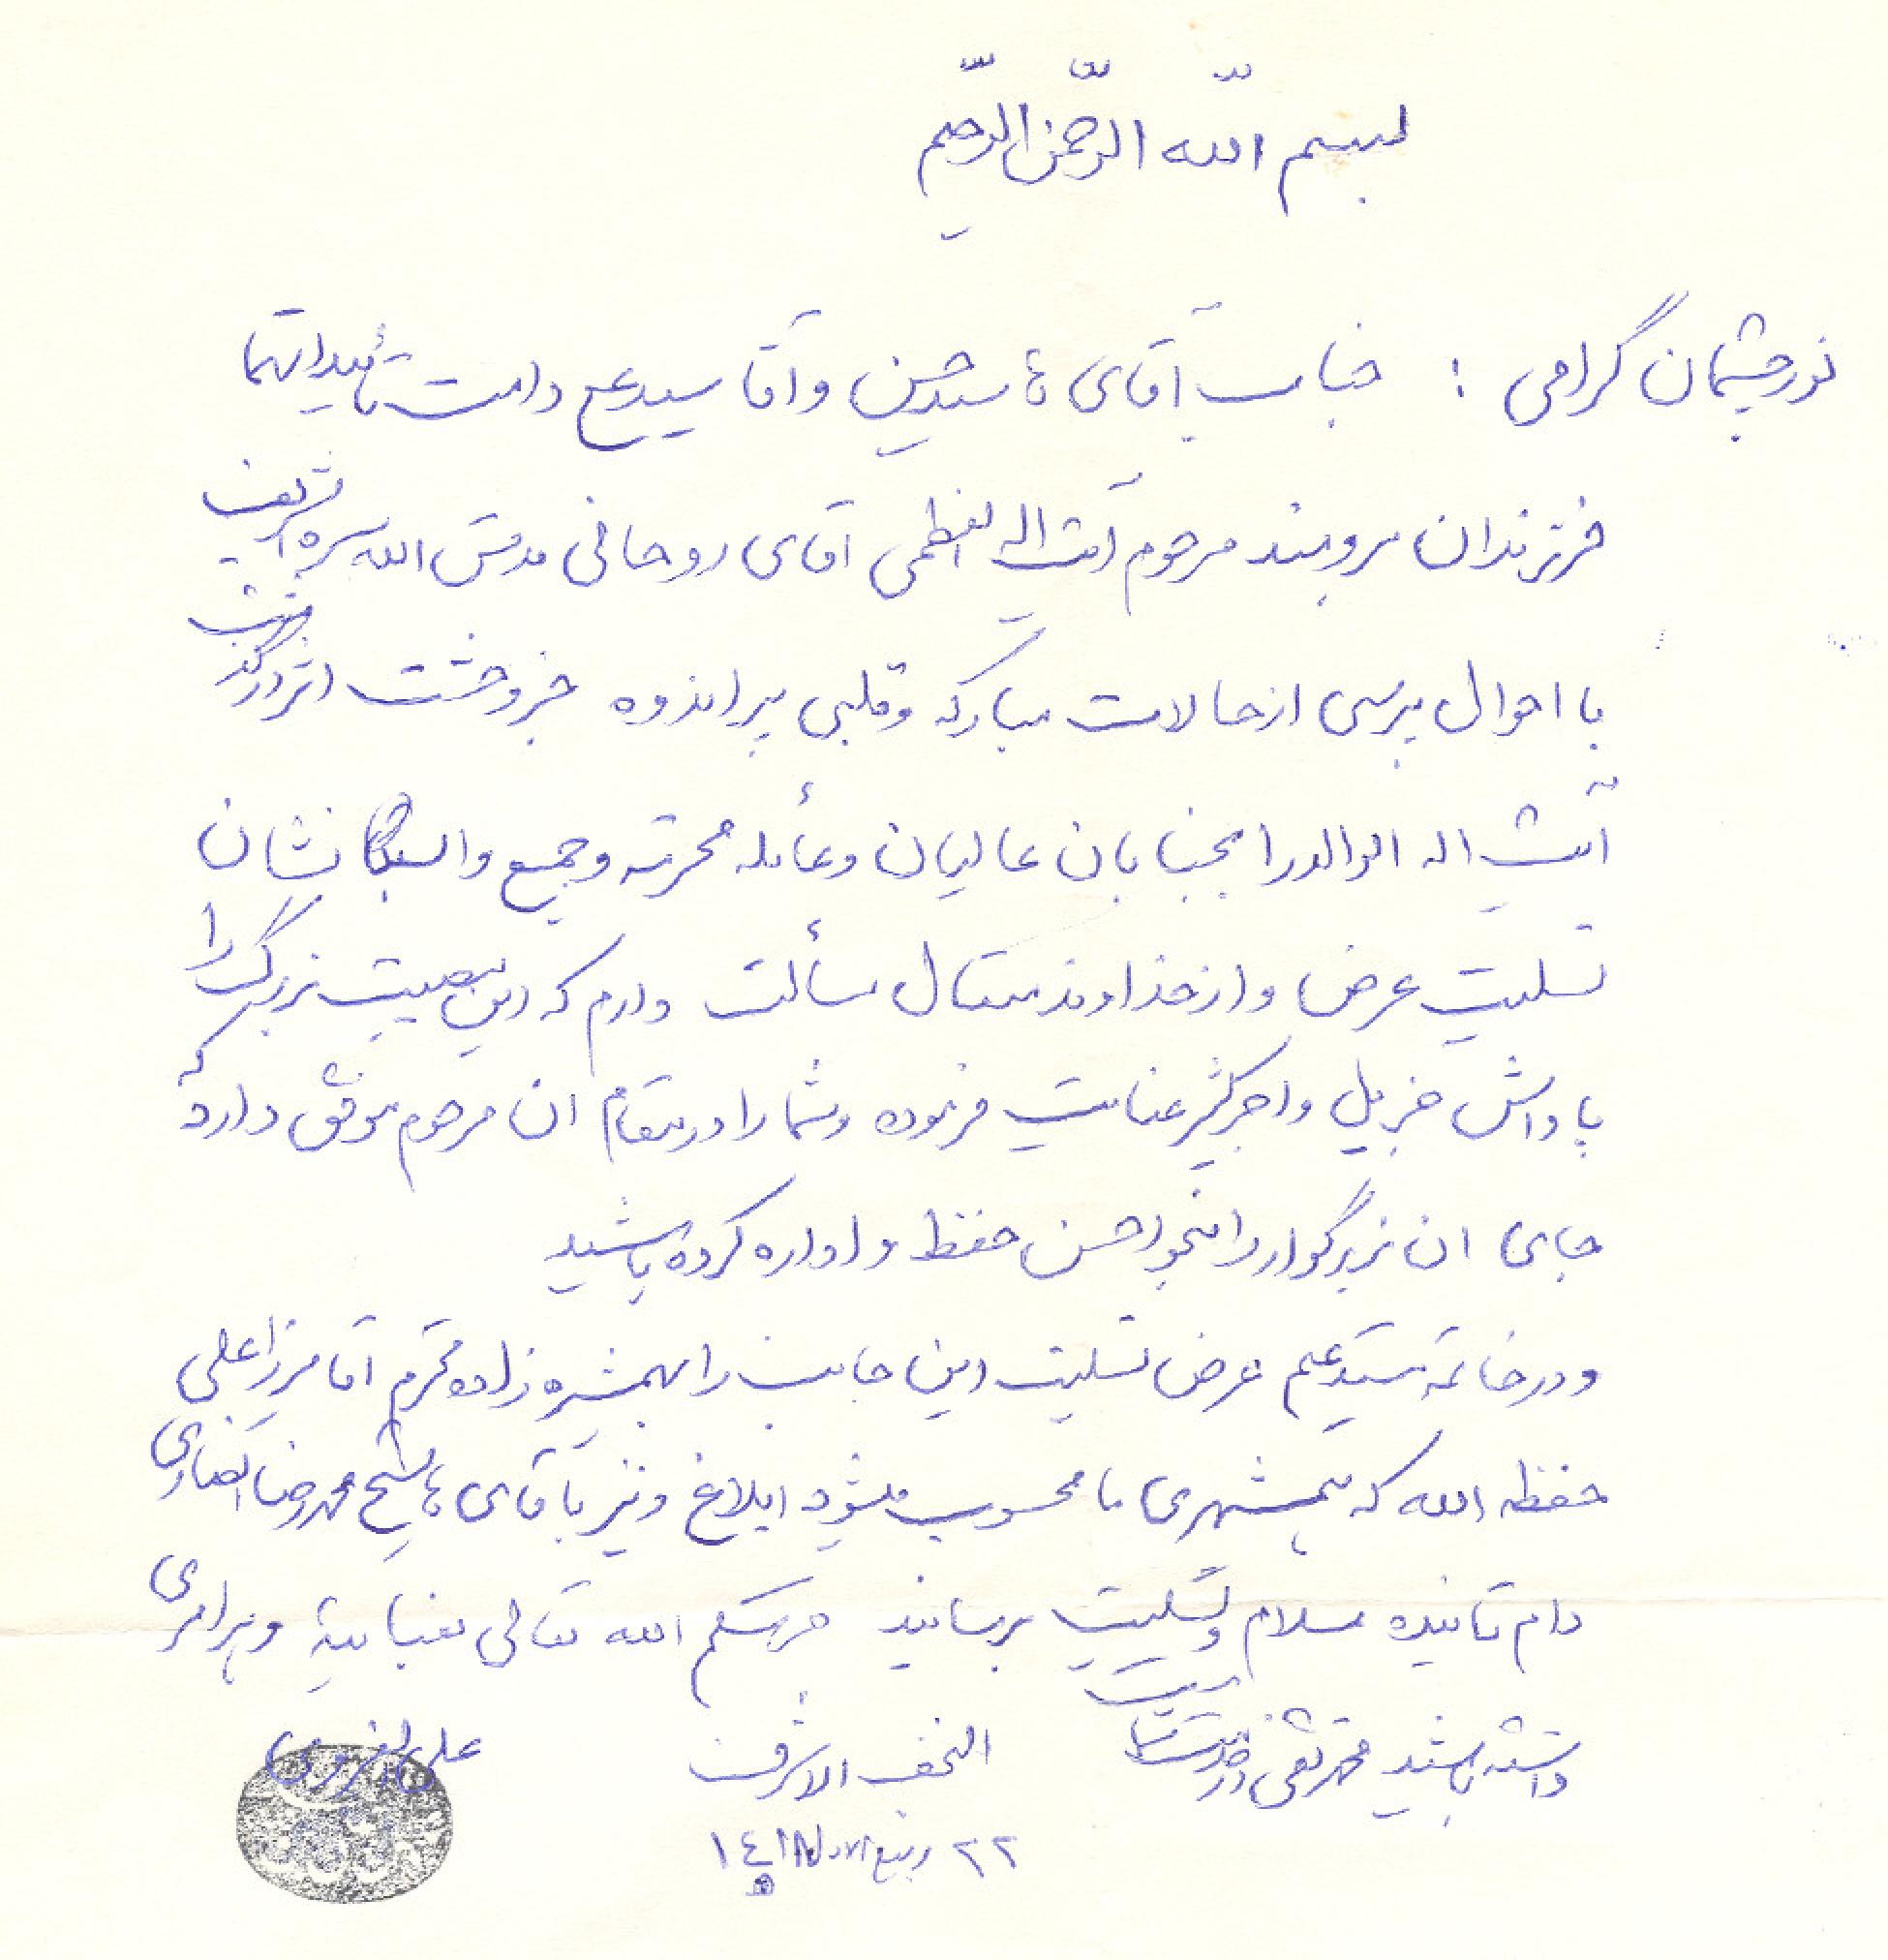 بسم الله الرحمن الرحیم
نور چشمان گرامی : جناب آقای ها سید حسن و آقا سید دامت تأییداتهما
فرزندان برومند مرحوم آیت اله العظمی آقای روحانی قدس الله سره الشریف
با احوال پرسی از حالات مبارکه و قلبی پر اندوه خبر وحشت اثر درگذشت
آیت اله الوالد را بجنابان عالیان و عائله محترمه و جمیع وابستگانشان
تسلیت عرض و از خداوند متعال مسألت دارم که این مصیبت بزرگ را
پاداش جزیل و اجر کثیر عنایت فرموده و شما را در مقام ان مرحوم موفق دارد که
جای ان بزرگوار را بنحو احسن حفظ و اداره کرده باشید
و در خاتمه مستدعیم عرض تسلیت این جانب را بهمشیره زاده محترم آقا میرزا علی
حفظه الله که همشهری ما محسوب میشود ابلاغ و نیز باقای ها شیخ محمد رضا انصاری
دام تائیده سلام و تسلیت برسانید حرسکم الله تعالی بعنایته وبرا
داشته باشید
النجف الاشرف
علی الغروی
٢٢ ربیع الاول ١٤١٨
ه